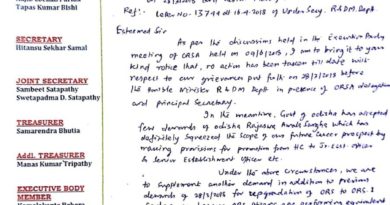 Tapas Kumar Bishi
SECRETARY
Hitansu Sekhar Samal
JOINT SECRETARY
Sambeet Satapathy
Swetapadma D. Satapathy
TREASURER
Samarendra Bhutia
Addl. TREASURER
Manas Kumar Tripathy
EXECUTIVE BODY
MEMBER
Ref:- Letter No. 13744 dt 16.4.2018 of Under Secy. R&DM Deptt.
Esteemed Sir
As per the discussions held in the Executive Body
meeting of ORSA held on I am to bring it to your
kind notice that, no action has been taken till date with
respect to our grievances put forth on 28/3/2018 before
the Hon'ble Minister R&DM Deptt in presence of ORSA delegation
and principal Secretary.
In the meantime, Govt of Odisha has accepted
few demands of Odisha Rajaswa Amala Sangha which has
definitely squeezed the scope of our future career prospect by
making provisions for promotion from HC to Jr Estt. Officer
& Senior Establishment Officer etc.
Under the above circumstances, we are
to supplement another demand in addition to previous
demands of 28/3/2018 for upgradation of ORS to ORS-I